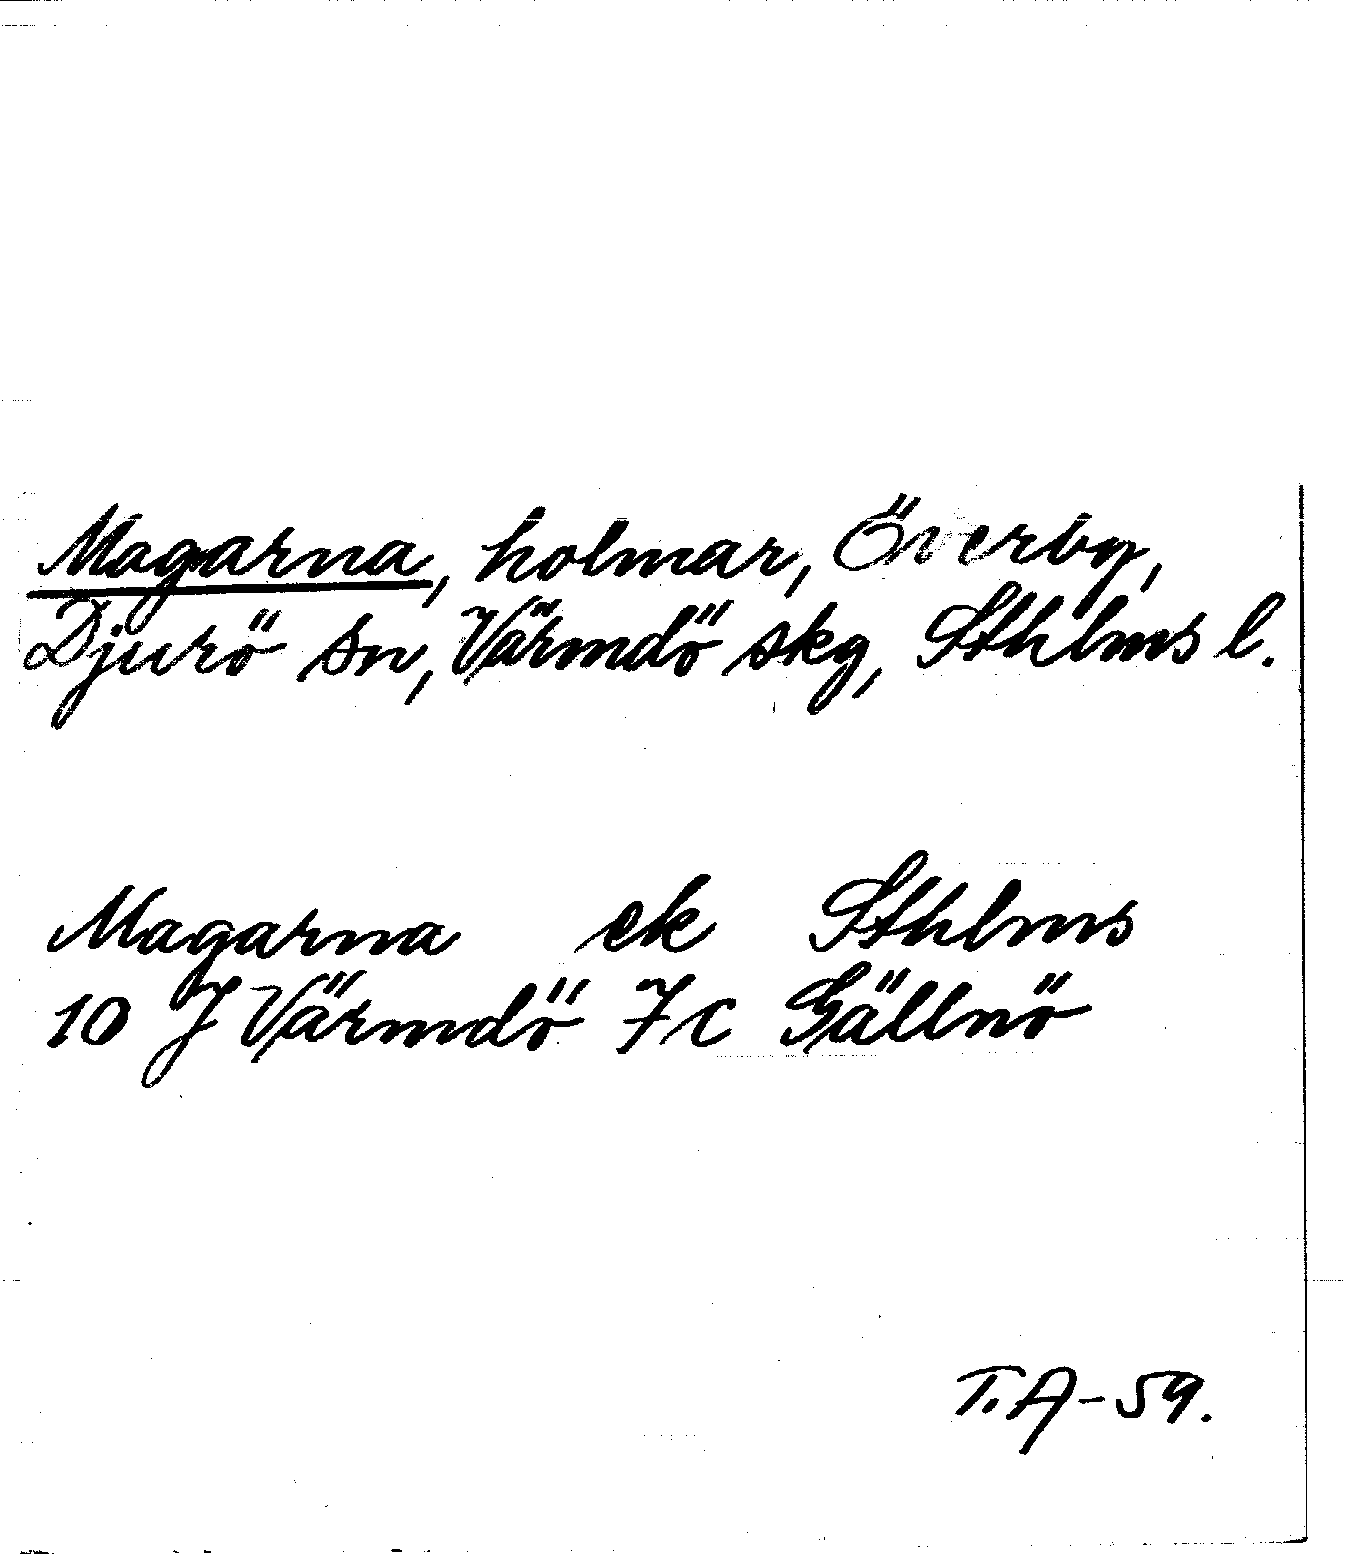 Magarna, holmar, Överby,
Djurö sn, Värmdö skg, Sthlms l.
Magarna ek Sthlms
10 J Värmdö 7c Gällnö
T.A-59.